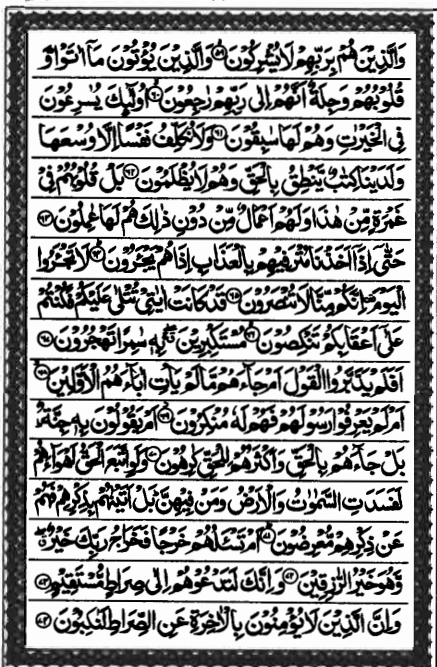 وَالَّذِيْنَ هُمْ بِرَبِّهِمْ لَا يُشْرِكُوْنَ ۙ﴿۵۹﴾ وَالَّذِيْنَ يُؤْتُوْنَ مَاۤ اٰتَوْا وَّ
قُلُوْبُهُمْ وَجِلَةٌ اَنَّهُمْ اِلٰى رَبِّهِمْ رٰجِعُوْنَ ۙ﴿۶۰﴾ اُولٰٓئِكَ يُسٰرِعُوْنَ
فِى الْخَيْرٰتِ وَهُمْ لَهَا سٰبِقُوْنَ ﴿۶۱﴾ وَلَا نُكَلِّفُ نَفْسًا اِلَّا وُسْعَهَا
وَلَدَيْنَا كِتٰبٌ يَّنْطِقُ بِالْحَقِّ وَهُمْ لَا يُظْلَمُوْنَ ﴿۶۲﴾ بَلْ قُلُوْبُهُمْ فِىْ
غَمْرَةٍ مِّنْ هٰذَا وَلَهُمْ اَعْمَالٌ مِّنْ دُوْنِ ذٰلِكَ هُمْ لَهَا عٰمِلُوْنَ ﴿۶۳﴾
حَتّٰۤى اِذَاۤ اَخَذْنَا مُتْرَفِيْهِمْ بِالْعَذَابِ اِذَا هُمْ يَجْـَٔرُوْنَ ؕ﴿۶۴﴾ لَا تَجْـَٔرُوا
الْيَوْمَ اِنَّكُمْ مِّنَّا لَا تُنْصَرُوْنَ ﴿۶۵﴾ قَدْ كَانَتْ اٰيٰتِىْ تُتْلٰى عَلَيْكُمْ فَكُنْتُمْ
عَلٰٓى اَعْقَابِكُمْ تَنْكِصُوْنَ ۙ﴿۶۶﴾ مُسْتَكْبِرِيْنَ ۖ بِهٖ سٰمِرًا تَهْجُرُوْنَ ﴿۶۷﴾
اَفَلَمْ يَدَّبَّرُوا الْقَوْلَ اَمْ جَآءَهُمْ مَّا لَمْ يَاْتِ اٰبَآءَهُمُ الْاَوَّلِيْنَ ﴿۶۸﴾
اَمْ لَمْ يَعْرِفُوْا رَسُوْلَهُمْ فَهُمْ لَهٗ مُنْكِرُوْنَ ﴿۶۹﴾ اَمْ يَقُوْلُوْنَ بِهٖ جِنَّةٌ ؕ
بَلْ جَآءَهُمْ بِالْحَقِّ وَاَكْثَرُهُمْ لِلْحَقِّ كٰرِهُوْنَ ﴿۷۰﴾ وَلَوِ اتَّبَعَ الْحَقُّ اَهْوَآءَهُمْ
لَفَسَدَتِ السَّمٰوٰتُ وَالْاَرْضُ وَمَنْ فِيْهِنَّ ؕ بَلْ اَتَيْنٰهُمْ بِذِكْرِهِمْ فَهُمْ
عَنْ ذِكْرِهِمْ مُّعْرِضُوْنَ ؕ﴿۷۱﴾ اَمْ تَسْـَٔلُهُمْ خَرْجًا فَخَرَاجُ رَبِّكَ خَيْرٌ ۖ
وَّهُوَ خَيْرُ الرّٰزِقِيْنَ ﴿۷۲﴾ وَاِنَّكَ لَتَدْعُوْهُمْ اِلٰى صِرَاطٍ مُّسْتَقِيْمٍ ﴿۷۳﴾
وَاِنَّ الَّذِيْنَ لَا يُؤْمِنُوْنَ بِالْاٰخِرَةِ عَنِ الصِّرَاطِ لَنٰكِبُوْنَ ﴿۷۴﴾